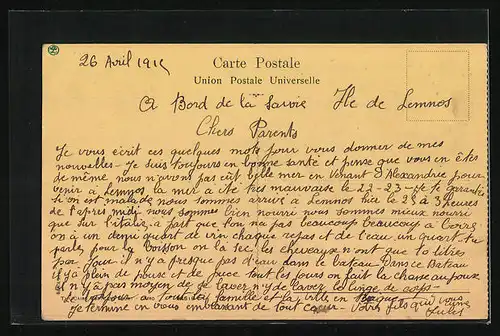 26 Avril 1915
Carte Postale
Union Postale Universelle
A Bord de la Savoie Ile de Lemnos
Chers Parents
Je vous écrit ces quelques mots pour vous donner de mes
nouvelles - Je suis toujours en bonne santé et pense que vous en êtes
de même nous n'avons pas eût belle mer en venant d'Alexandrie pour
venir à Lemnos la mer a été très mauvaise le 22-23 - je te garantie
si on est malade nous sommes arrivé à Lemnos hier le 25 à 3 heures
de l'après midi nous sommes bien nourri nous sommes mieux nourri
que sur l'italie, a part que l'on na pas beaucoup beaucoup a boire
on a un demi quart de vin chaque repas et de l'eau un quart
par la Boisson on la sec, les chevaux n'ont que 10 litres
par Jour il n'y a presque pas d'eau dans le bateau Dans ce Bateau
il y a plein de pouse et de puce tout les jours on fait la chance aux poux
il n'y a pas moyen de se laver n'y de laver le linge de corps -
tous la famille et la ville en
Je termine en vous embrassant de tout cœur - Votre fils qui vous aime
Jules